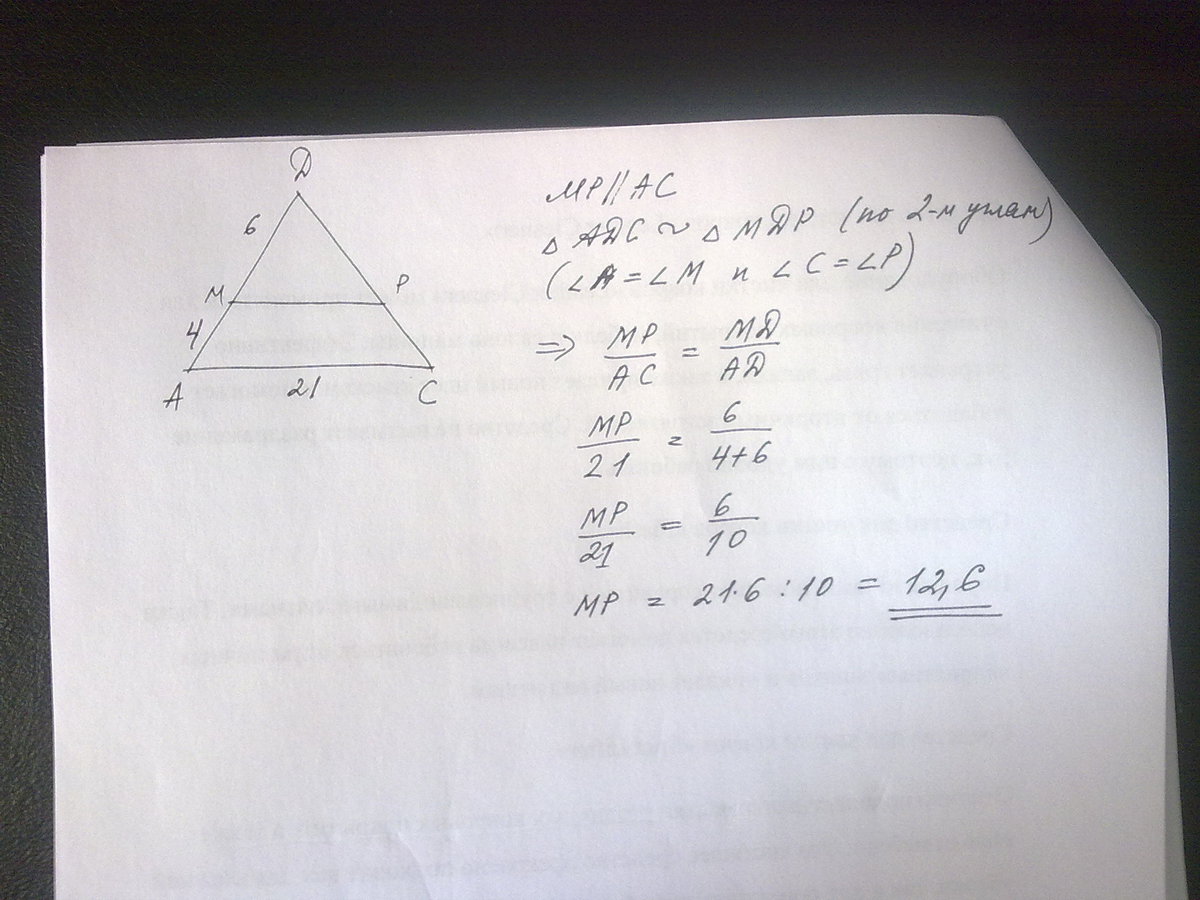 Д
6
M P
4
A 21 C
MP // AC
△ АДС ~ △ МДР (по 2-м углам)
(∠A = ∠M и ∠C = ∠P)
=> MP/AC = МД/АД
MP/21 = 6/4+6
MP/21 = 6/10
MP = 21·6 : 10 = 12,6